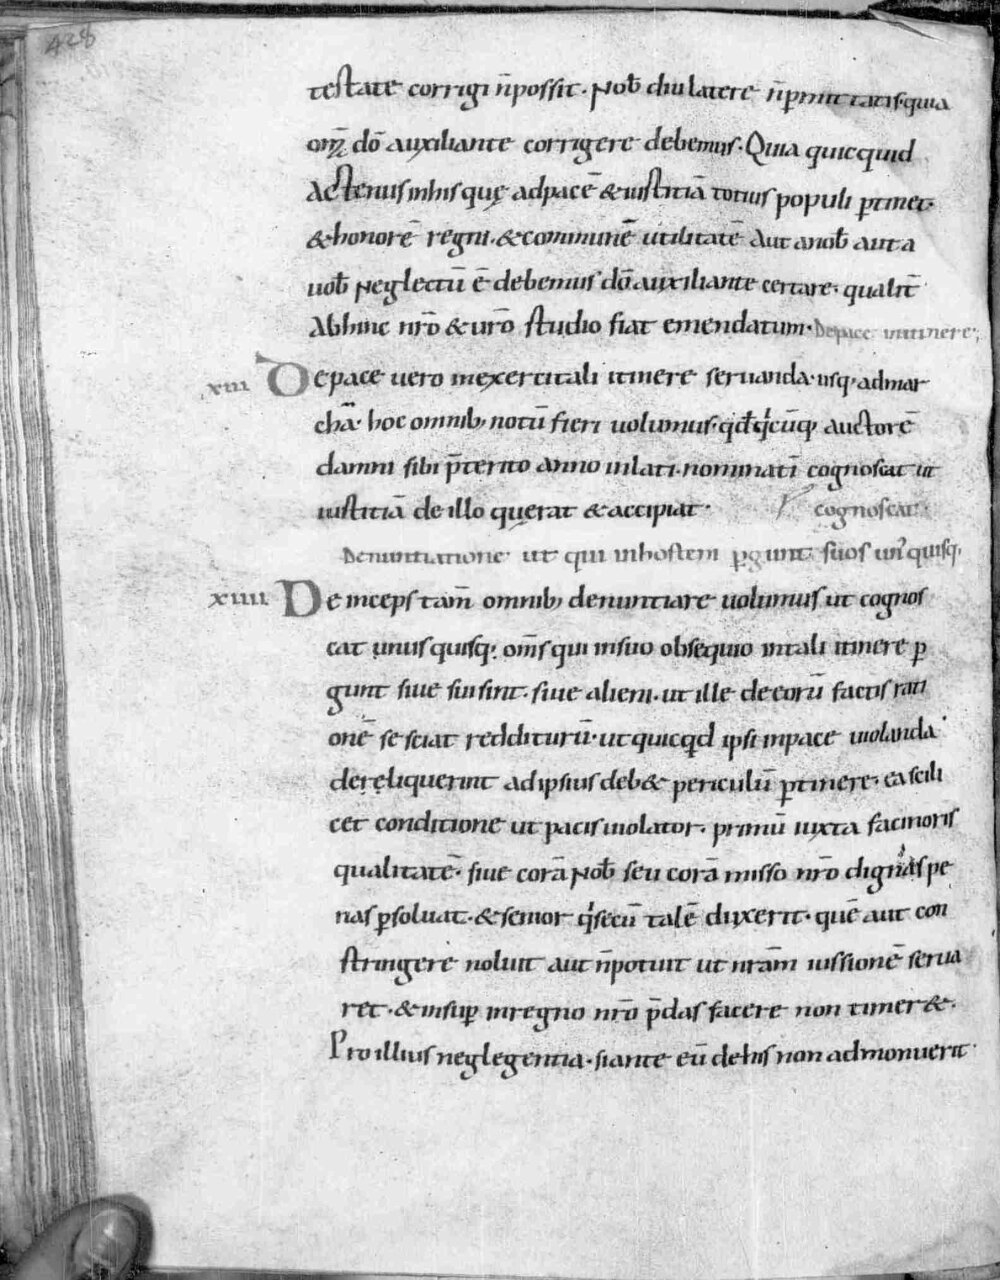 428
testate corrigi n̄possit. Nob̄ diu latere n̄p̱mittatis. quia
om̄ꝫ dō auxiliante corrigere debemus. Quia quicquid
Actenus inhis quę adpacē & iustitiā totius populi p̱tinet.
& honorē regni. & communē utilitatē Aut anob̄ aut a
uob̄ Neglectū ē debemus dō auxiliante certare. qualit̄
Abhinc nr̄o & ur̄o studio fiat emendatum. De pace initinere;
xiii De pace uero inexercitali itinere seruanda. usq; admar
chā. hoc omnib; notū fieri uolumus. qd̄ qͥcūq; auctorē
damni sibi p̄terito anno inlati. nominatī cognoscat ut
iustitiā de illo querat & accipiat. cognoscat
Denuntiatione ut qui inhostem p̱gunt suos unꝰquisq;
xiiii Deinceps tam̄ omnib; denuntiare uolumus ut cognos
cat unusquisq; om̄s qui insuo obsequio intali itinere p̱
gunt siue sui sint. siue alieni. ut ille de eorū factis rati
onē se sciat redditurū. ut quicqd ipsi inpace uiolanda
dereliquerint adipsius deb& periculū p̱tinere. ea scili
cet conditione ut pacis uiolator. primū iuxta facinoris
qualitatē. siue corā Nob̄ seu corā misso nr̄o dignas pe
nas p̱soluat. & senior qͥ secū talē duxerit. quē aut con
stringere noluit aut n̄potuit ut nr̄am iussionē serua
ret. & insup̱ inregno nr̄o p̄das facere non timer&.
Pro illius neglegentia. si ante eū de his non admonuerit.